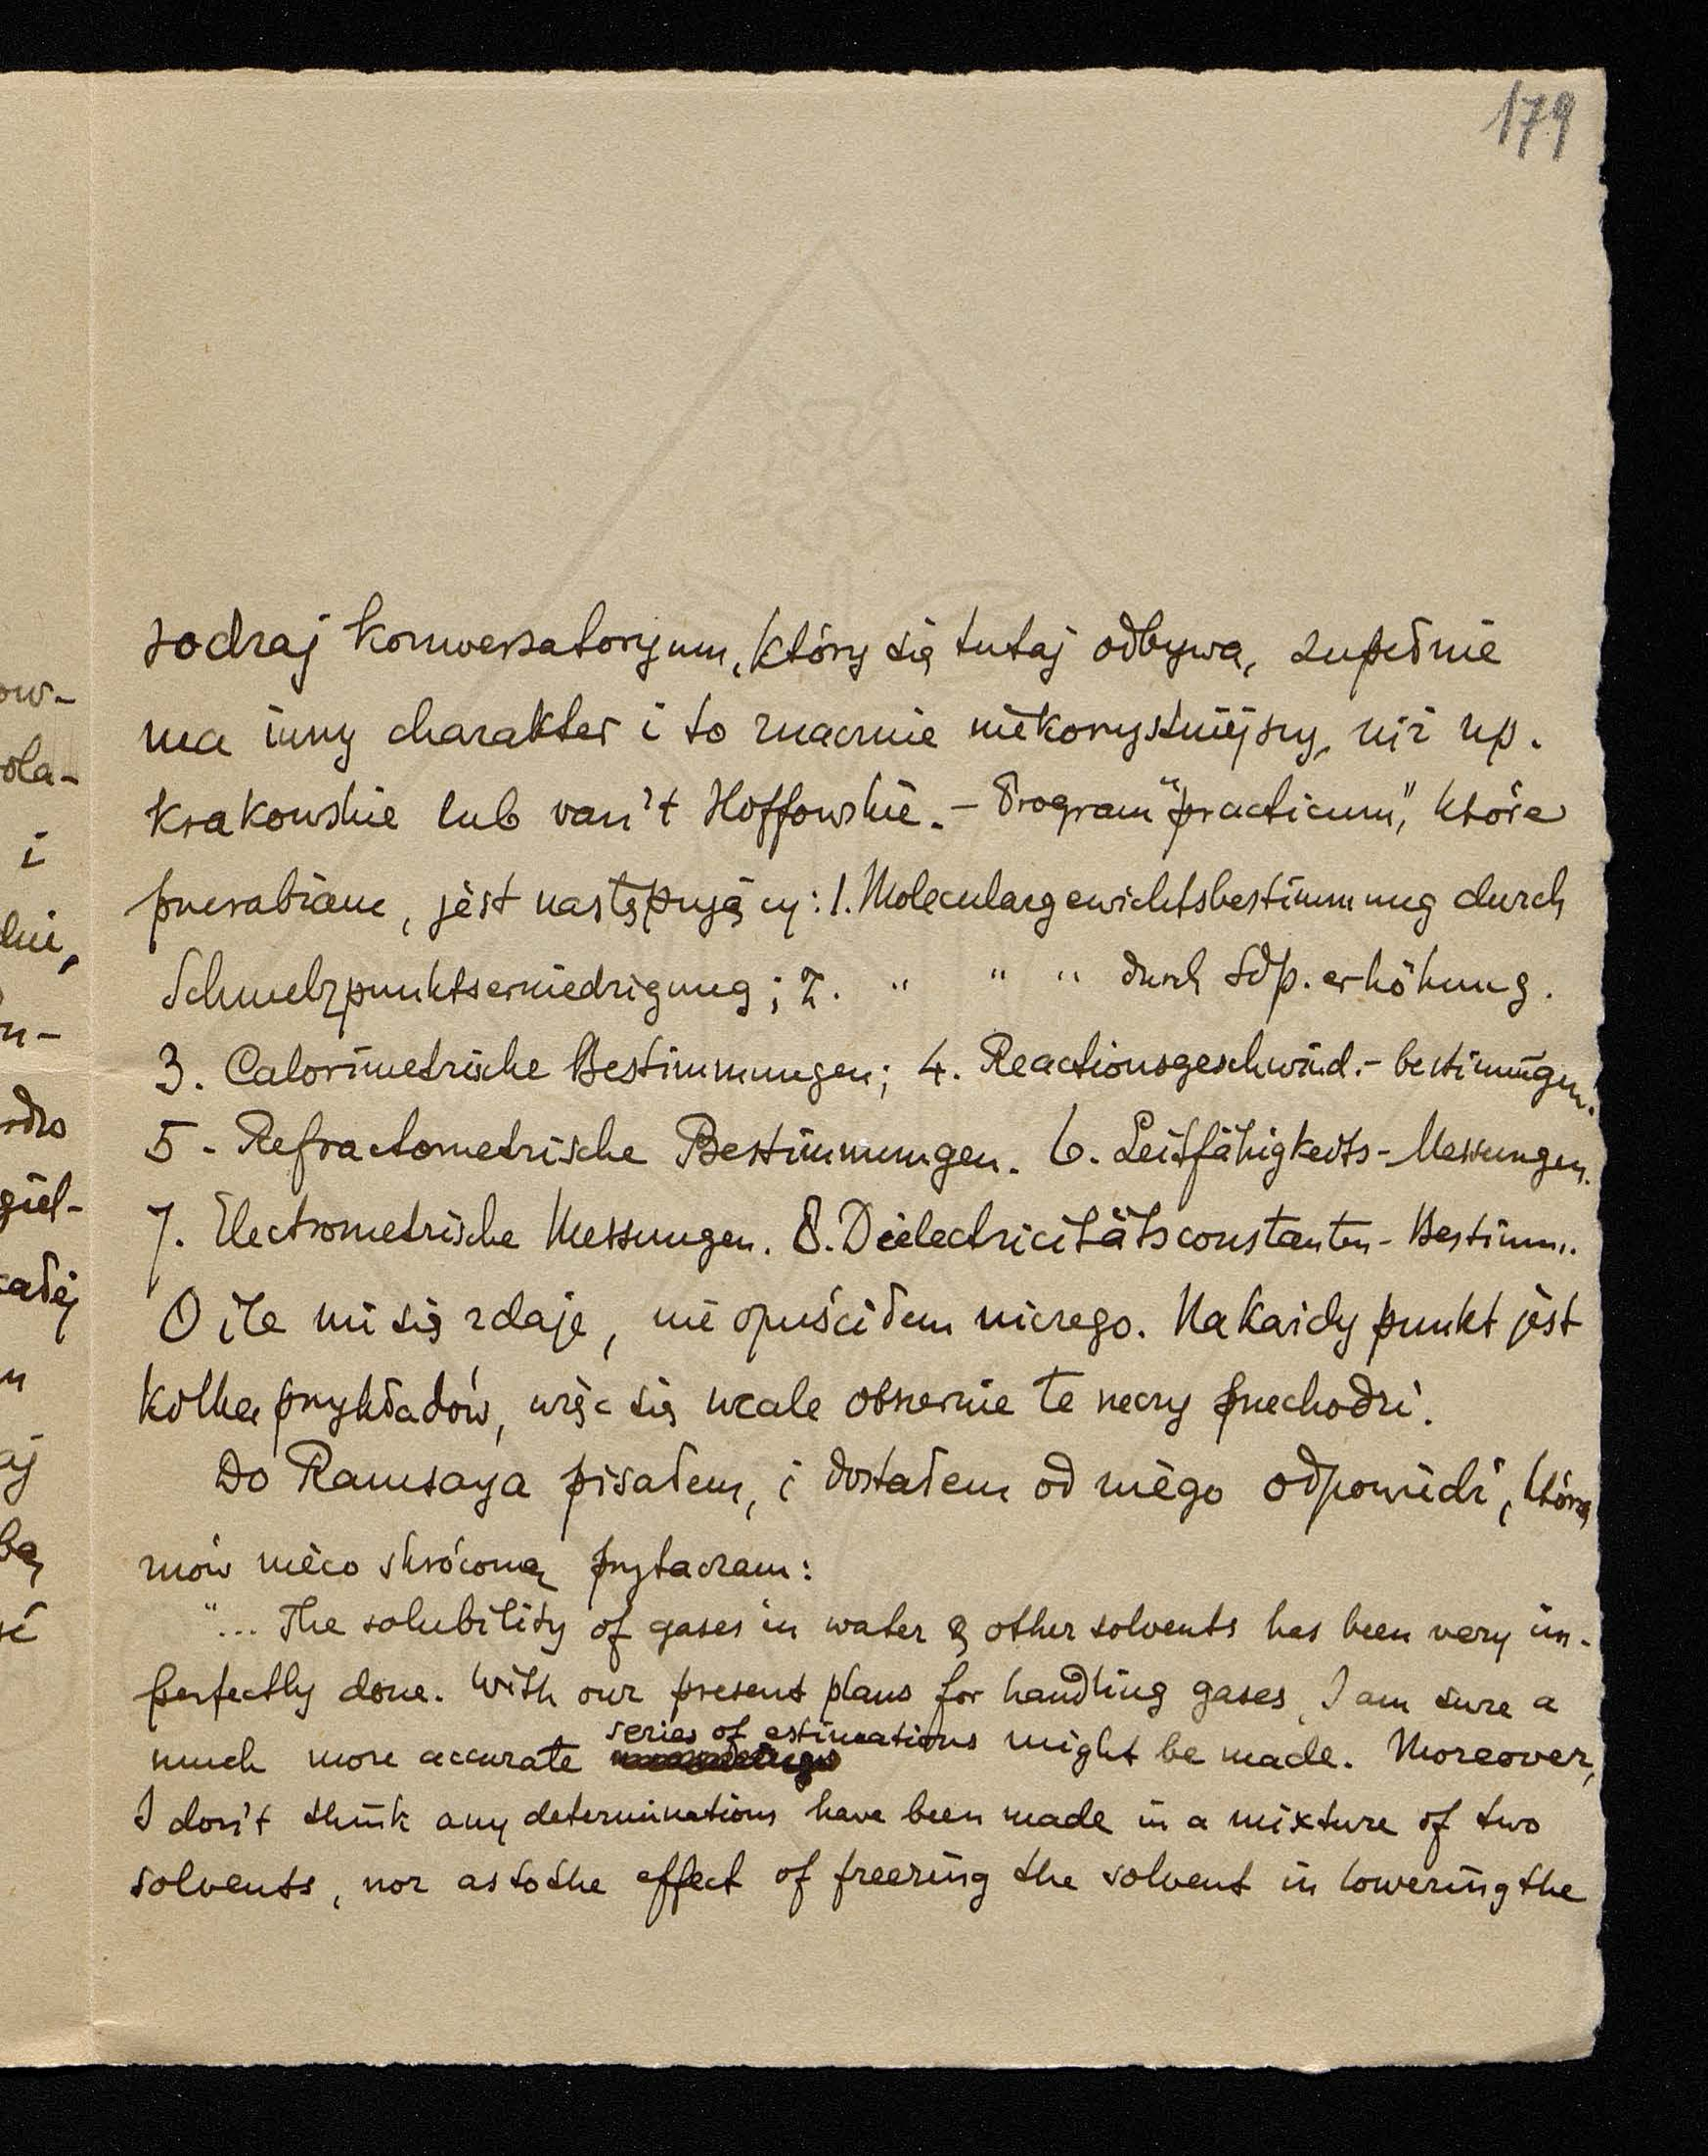 179
rodzaj konwersatoryum, który się tutaj odbywa, zupełnie
ma inny charakter i to znacznie niekorzystniejszy, niż np.
krakowskie lub van't Hoffowskie. – Program "practicum", które
przerabiane, jest następujący: 1. Moleculargewichtsbestimmung durch
Schmelzpunktserniedrigung; 2. " " " durch Sdp. erhöhung.
3. Calorimetrische Bestimmungen; 4. Reactionsgeschwind.- bestimmungen.
5. Refractometrische Bestimmungen. 6. Leitfähigkeits-Messungen.
7. Electrometrische Messungen. 8. Dielectricitätsconstanten-Bestimm.
O ile mi się zdaje, nie opuściłem niczego. Na każdy punkt jest
kilka przykładów, więc się wcale obszernie te rzeczy przechodzi.
Do Ramsaya pisałem, i dostałem od niego odpowiedź, którą
znów nieco skróconą przytaczam:
"... The solubility of gases in water & other solvents has been very im-
perfectly done. With our present plans for handling gases, I am sure a
much more accurate series of estimations might be made. Moreover,
I don't think any determinations have been made in a mixture of two
solvents, nor as to the effect of freezing the solvent in lowering the
ow-
ola-
i
dni,
n-
giel-
całej
aj